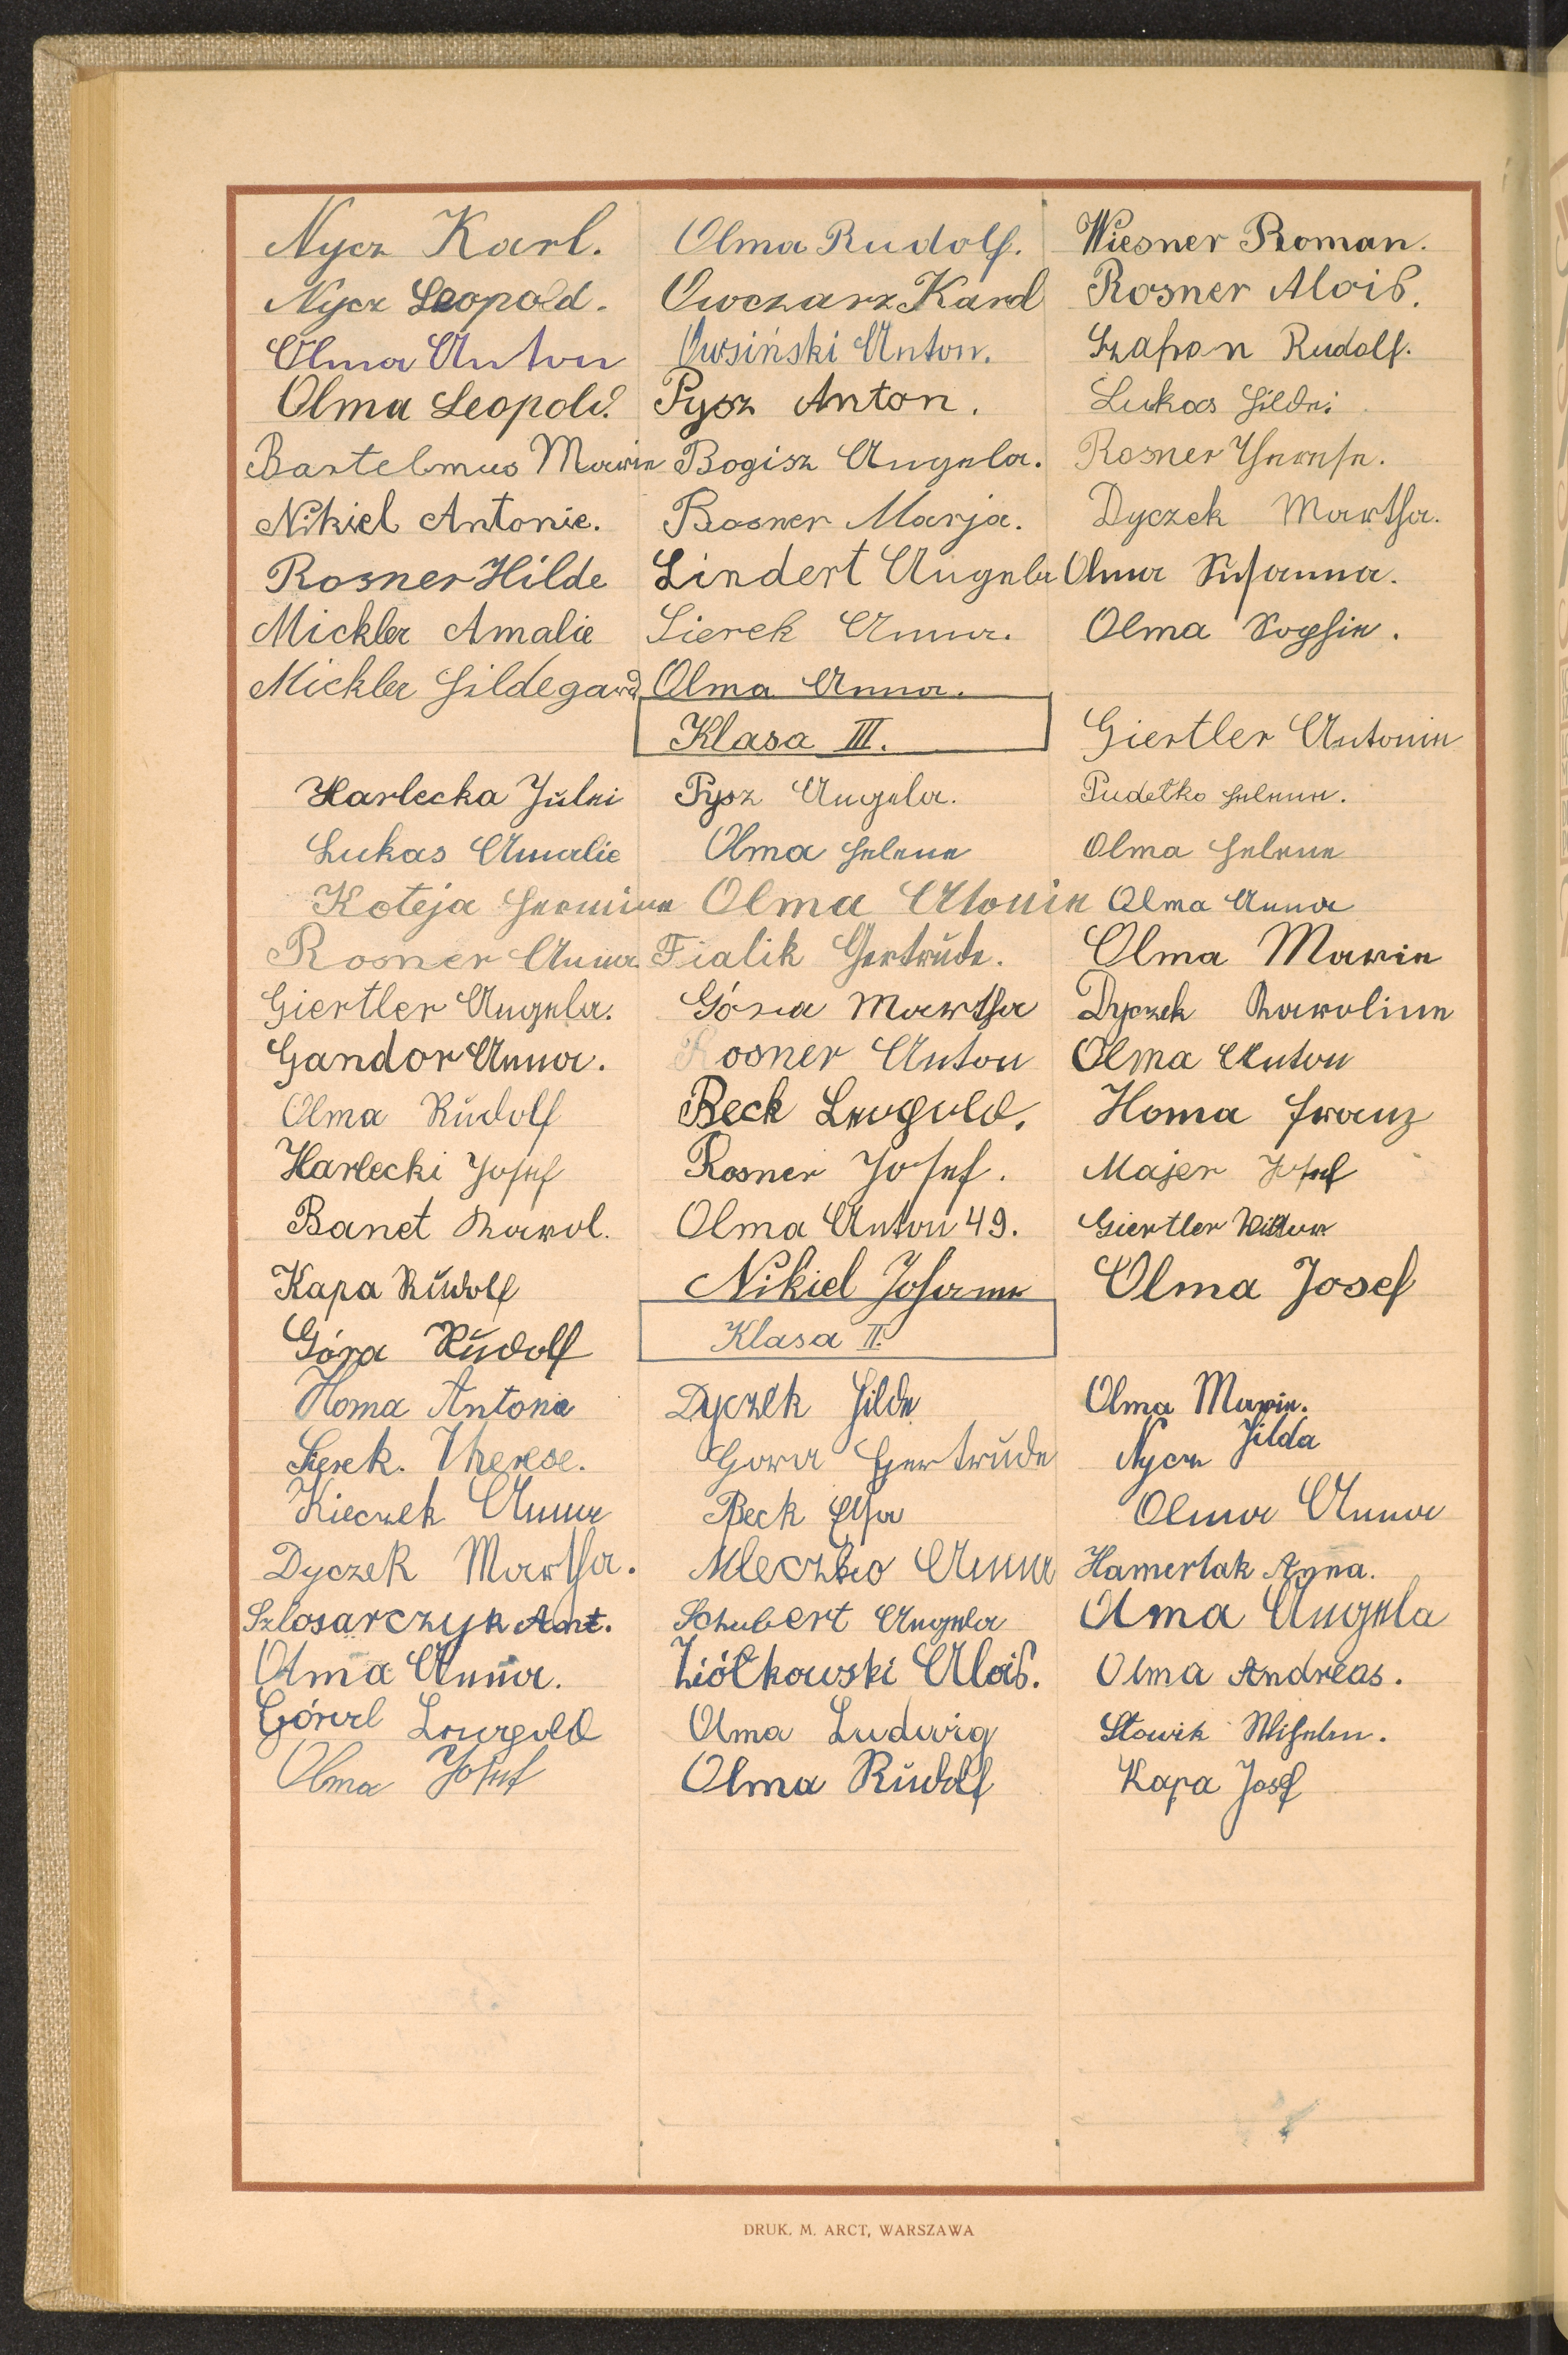 Nycz Karl. Olma Rudolf. Wiesner Roman.
Nycz Leopold. Owczarz Karol Rosner Alois.
Olma Anton Owsiński Anton. Szafron Rudolf.
Olma Leopold Pysz Anton. Lukas Hilde
Bartelmus Marie Bogisz Angela. Rosner Therese.
Nikiel Antonie. Rosner Marja. Dyczek Martha.
Rosner Hilde Lindert Angela Olma Susanna.
Mickler Amalie Sierek Anna. Olma Sophie.
Mickler Hildegard Olma Anna.
Klasa III. Giertler Antonie
Harlecka Julei Pysz Angela. Pudełko Helene.
Lukas Amalie Olma Helene Olma Helene
Koteja Hermine Olma Atonie Olma Anna
Rosner Anna Fialik Gertrude. Olma Marie
Giertler Angela. Góra Martha Dyczek Karoline
Gandor Anna. Rosner Anton Olma Anton
Olma Rudolf Beck Leopold. Homa Franz
Harlecki Josef Rosner Josef. Majer Josef
Banet Karol. Olma Anton 49. Giertler Wiktor
Kapa Rudolf Nikiel Johann Olma Josef
Góra Rudolf Klasa II.
Homa Antonie Dyczek Hilde Olma Marie.
Sierek. Therese. Gora Gertrude Nycz Hilda
Kieczek Anna Beck Elsa Olma Anna
Dyczek Martha. Mleczko Anna Hamerlak Anna.
Szlosarczyk Ant. Schubert Angela Olma Angela
Olma Anna. Ziółkowski Alois. Olma Andreas.
Góral Leopold Olma Ludwig Słowik Wilhelm.
Olma Josef Olma Rudolf Kapa Josef
DRUK. M. ARCT, WARSZAWA